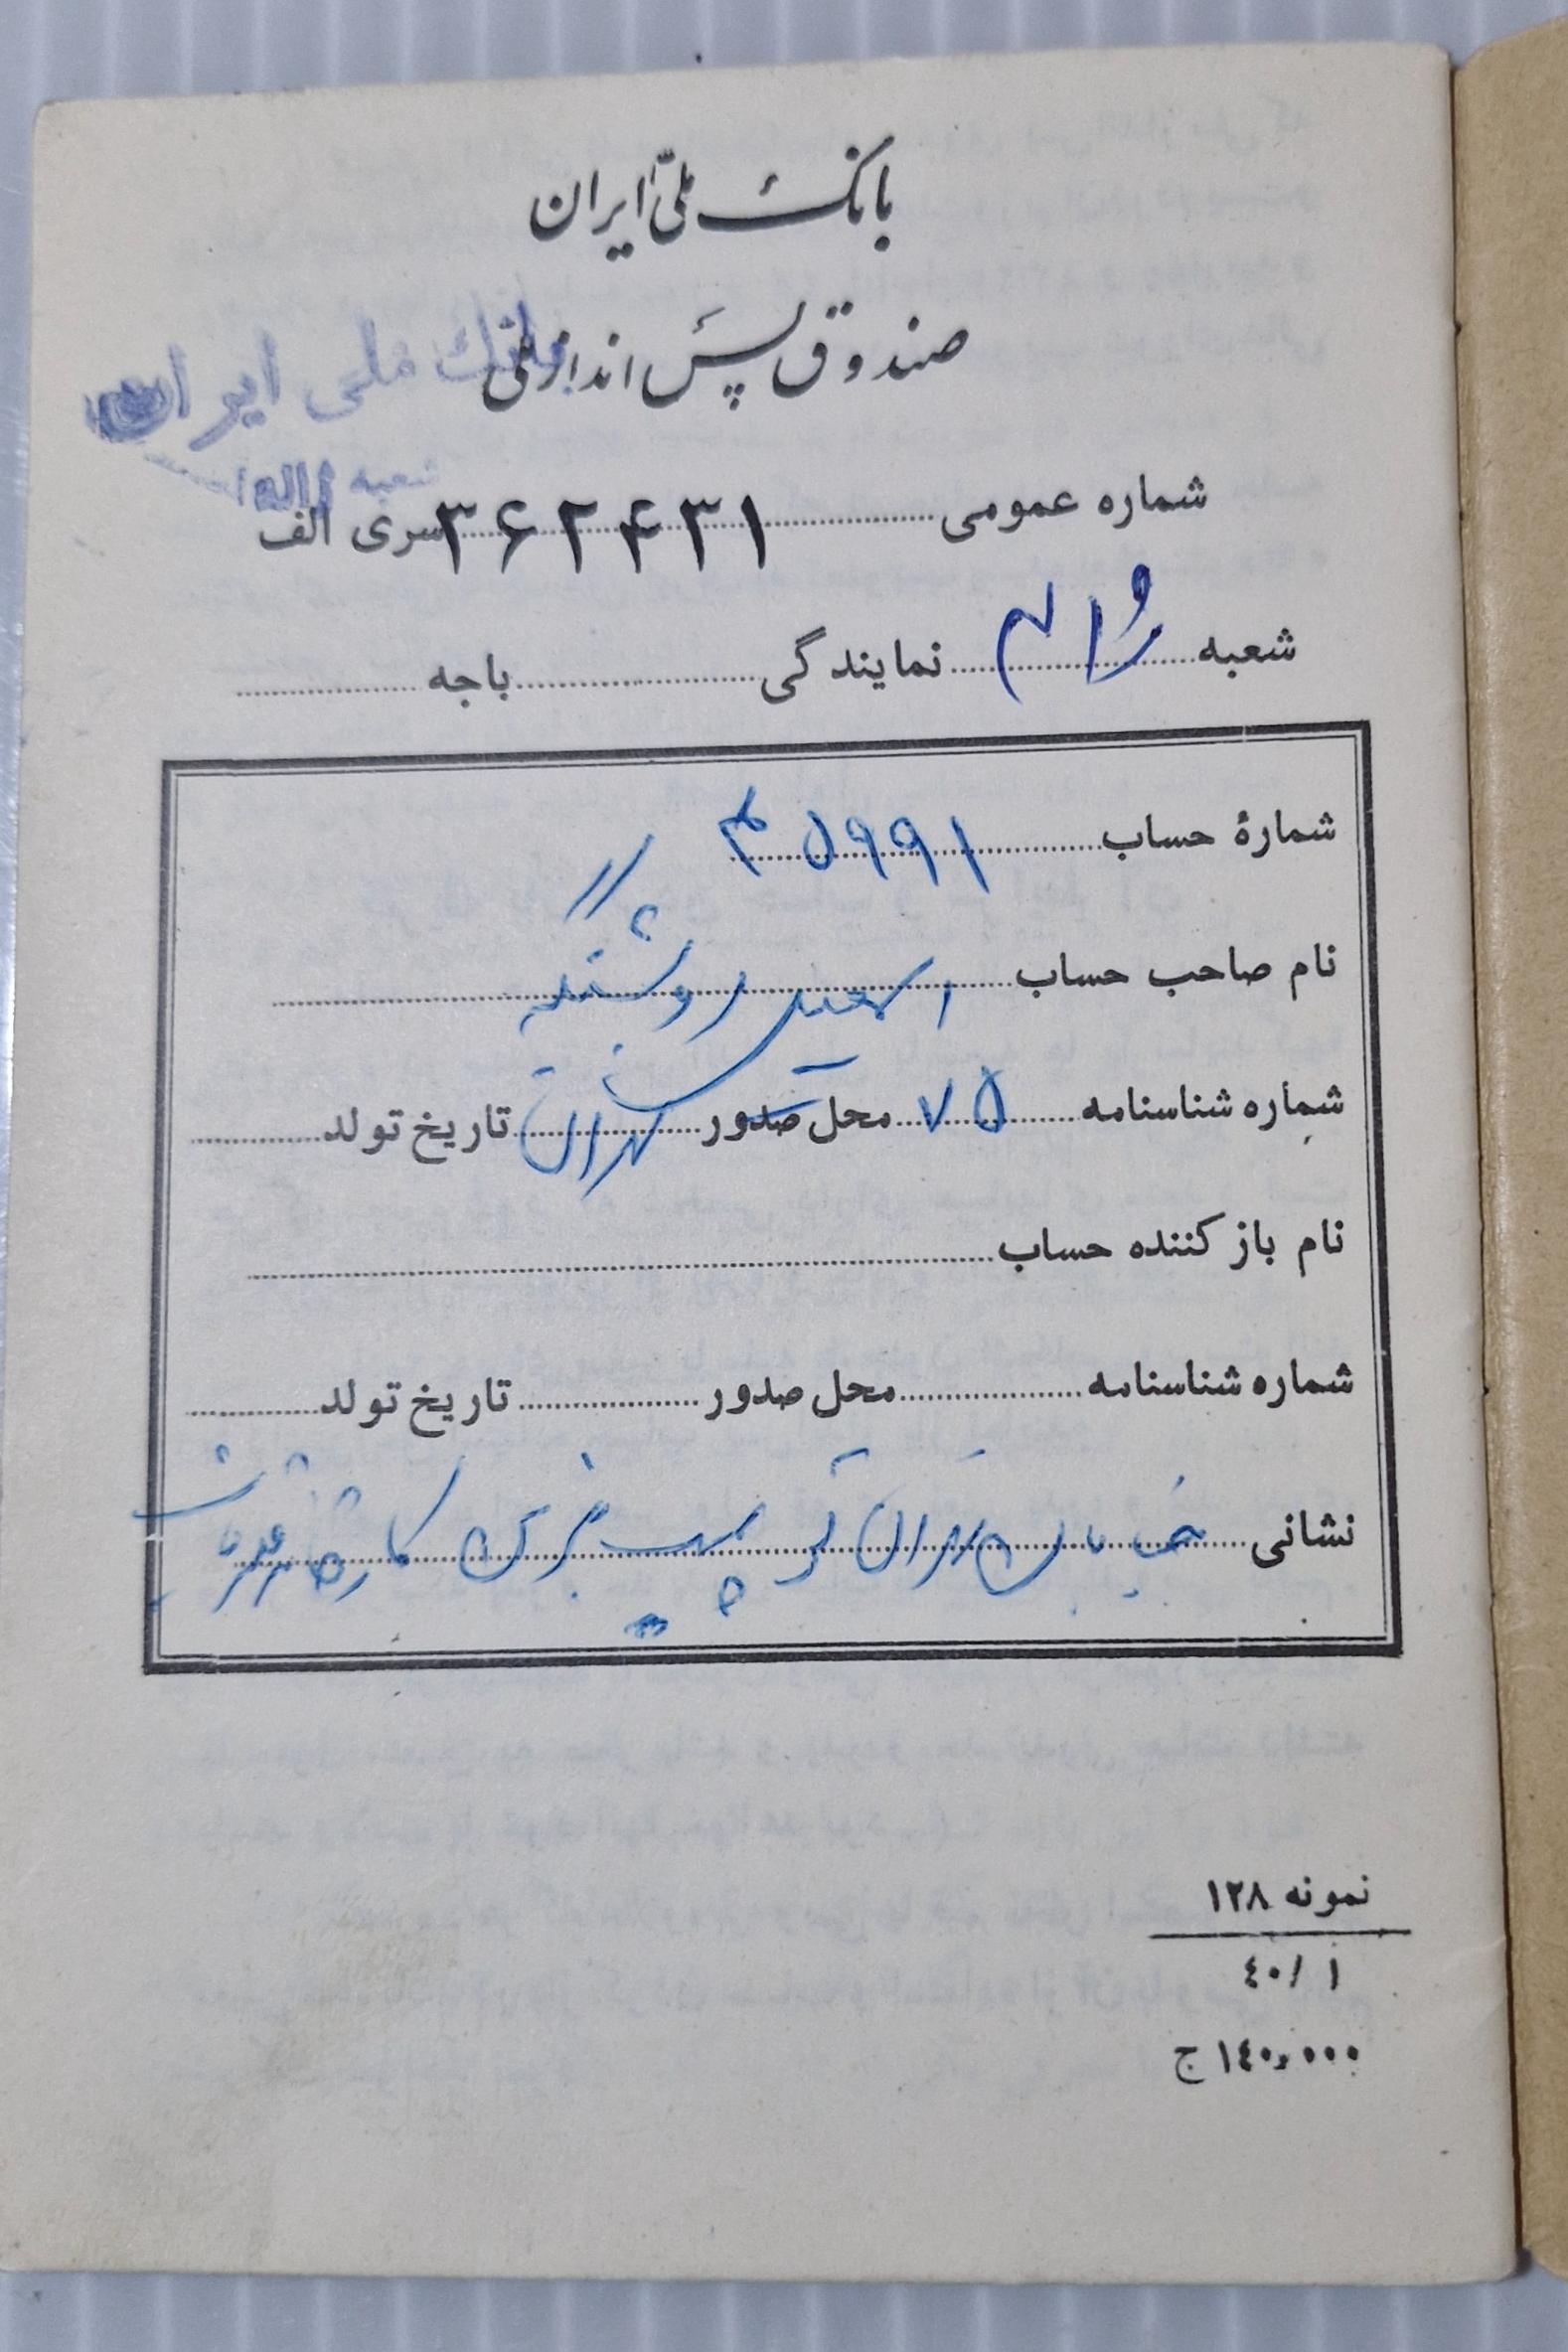 بانک ملّی ایران
صندوق پس انداز ملّی
بانك ملی ایران
شعبه
شماره عمومی ۳۶۲۴۳۱ سری الف
شعبه نمایندگی باجه
شمارهٔ حساب ۴۵۹۹۱
نام صاحب حساب اسمعیل
شماره شناسنامه ۷۵ محل صدور تهران تاریخ تولد
نام باز کننده حساب
شماره شناسنامه محل صدور تاریخ تولد
نشانی خیابان تهران
نمونه ۱۲۸
۴۰/۱
۱۴۰,۰۰۰ ج